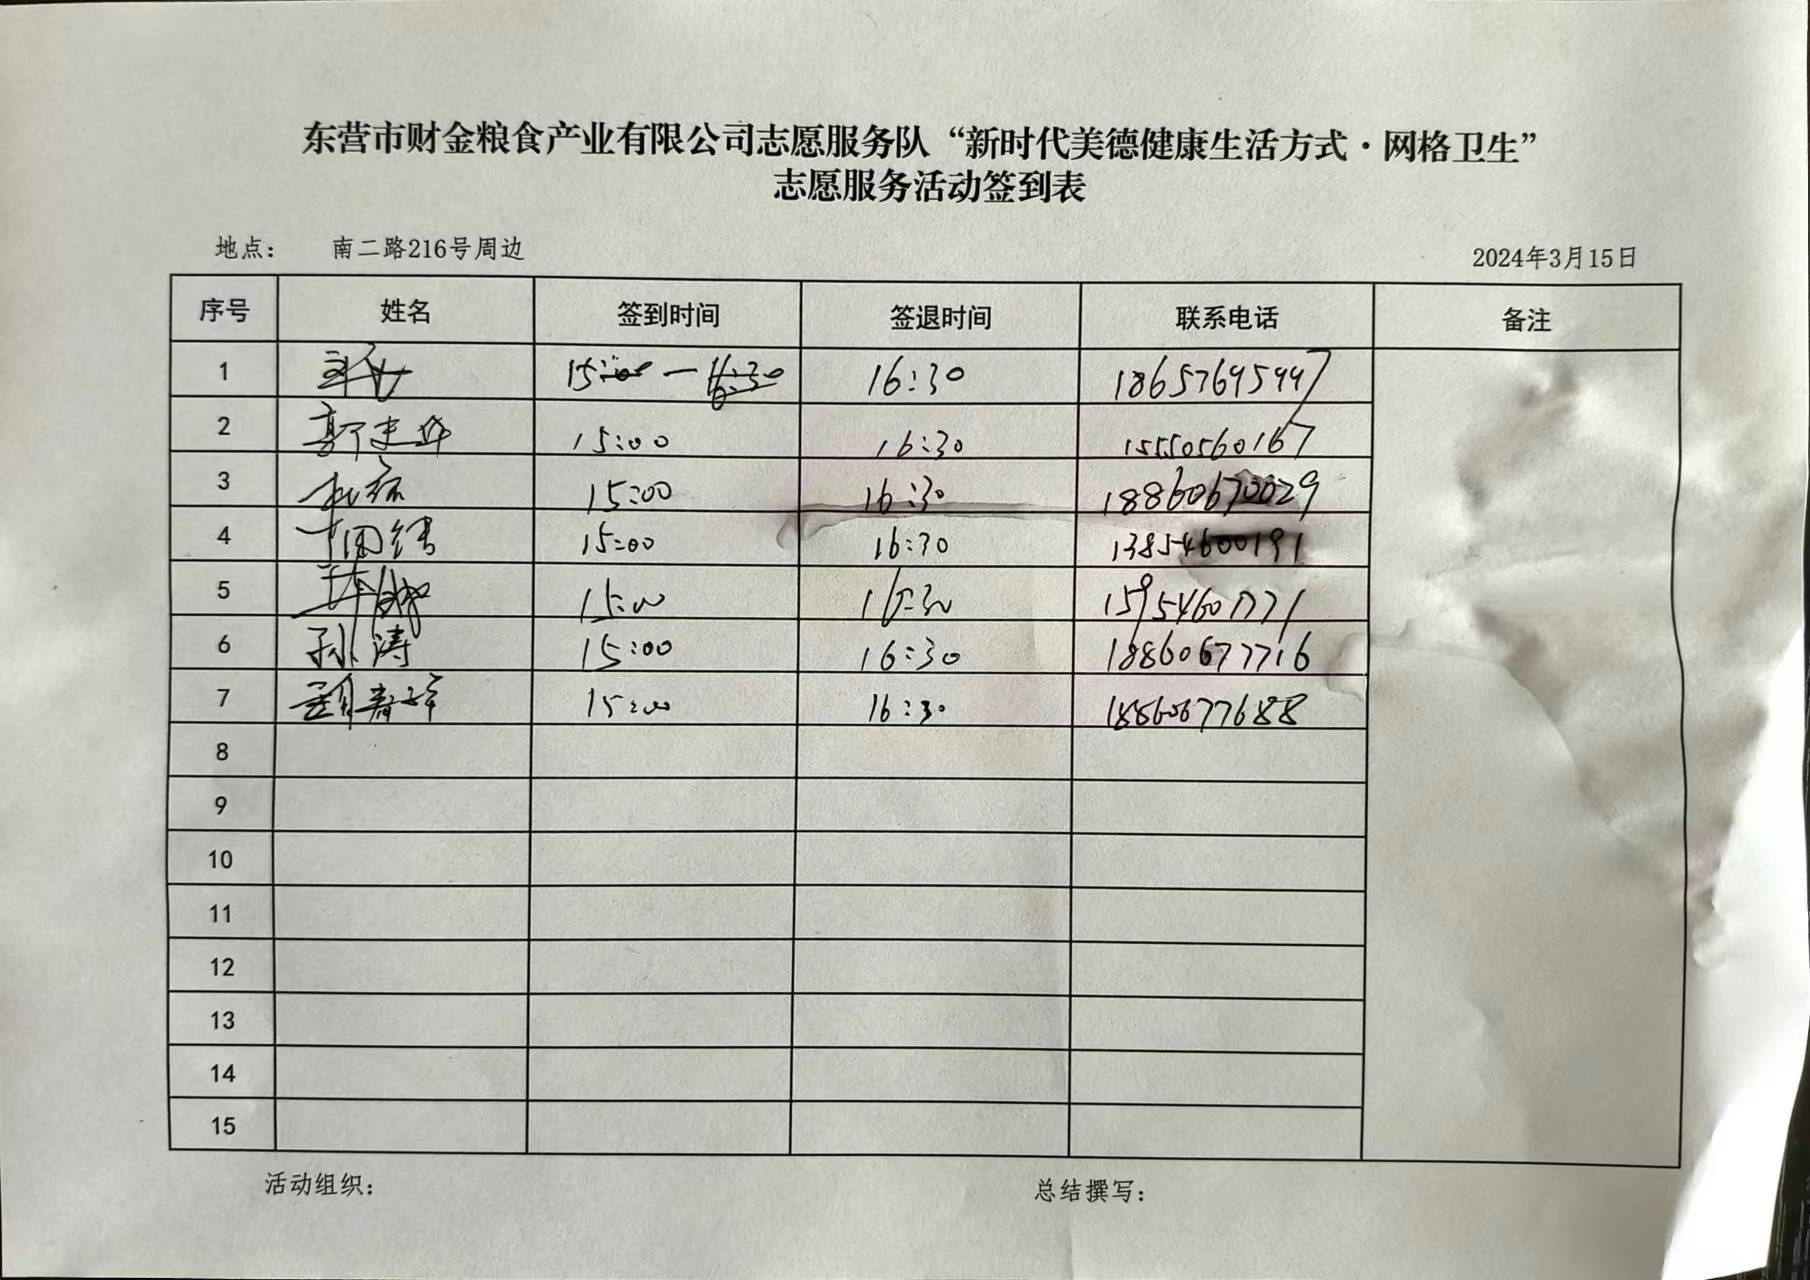 东营市财金粮食产业有限公司志愿服务队“新时代美德健康生活方式·网格卫生”
志愿服务活动签到表
地点： 南二路216号周边 2024年3月15日
序号 姓名 签到时间 签退时间 联系电话 备注
1 15:00 — 16:30 16:30
2 15:00 16:30 15550560167
3 15:00 16:30 18860670029
4 15:00 16:30 13854600191
5 15:00 16:30 15954601771
6 孙涛 15:00 16:30 18860677716
7 15:00 16:30 18860677688
8
9
10
11
12
13
14
15
活动组织： 总结撰写：